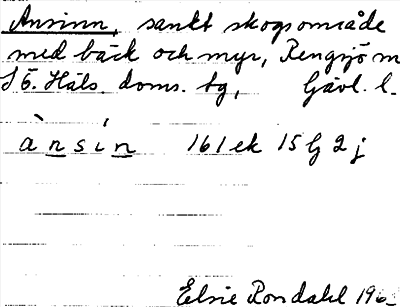 Ansinn, sankt skogsområde
med bäck och myr, Rengsjö m
S Ö. Häls. doms. tg, Gävl. l.
ànsín 161 ek 15 G 2 j
Elsie Rondahl 196